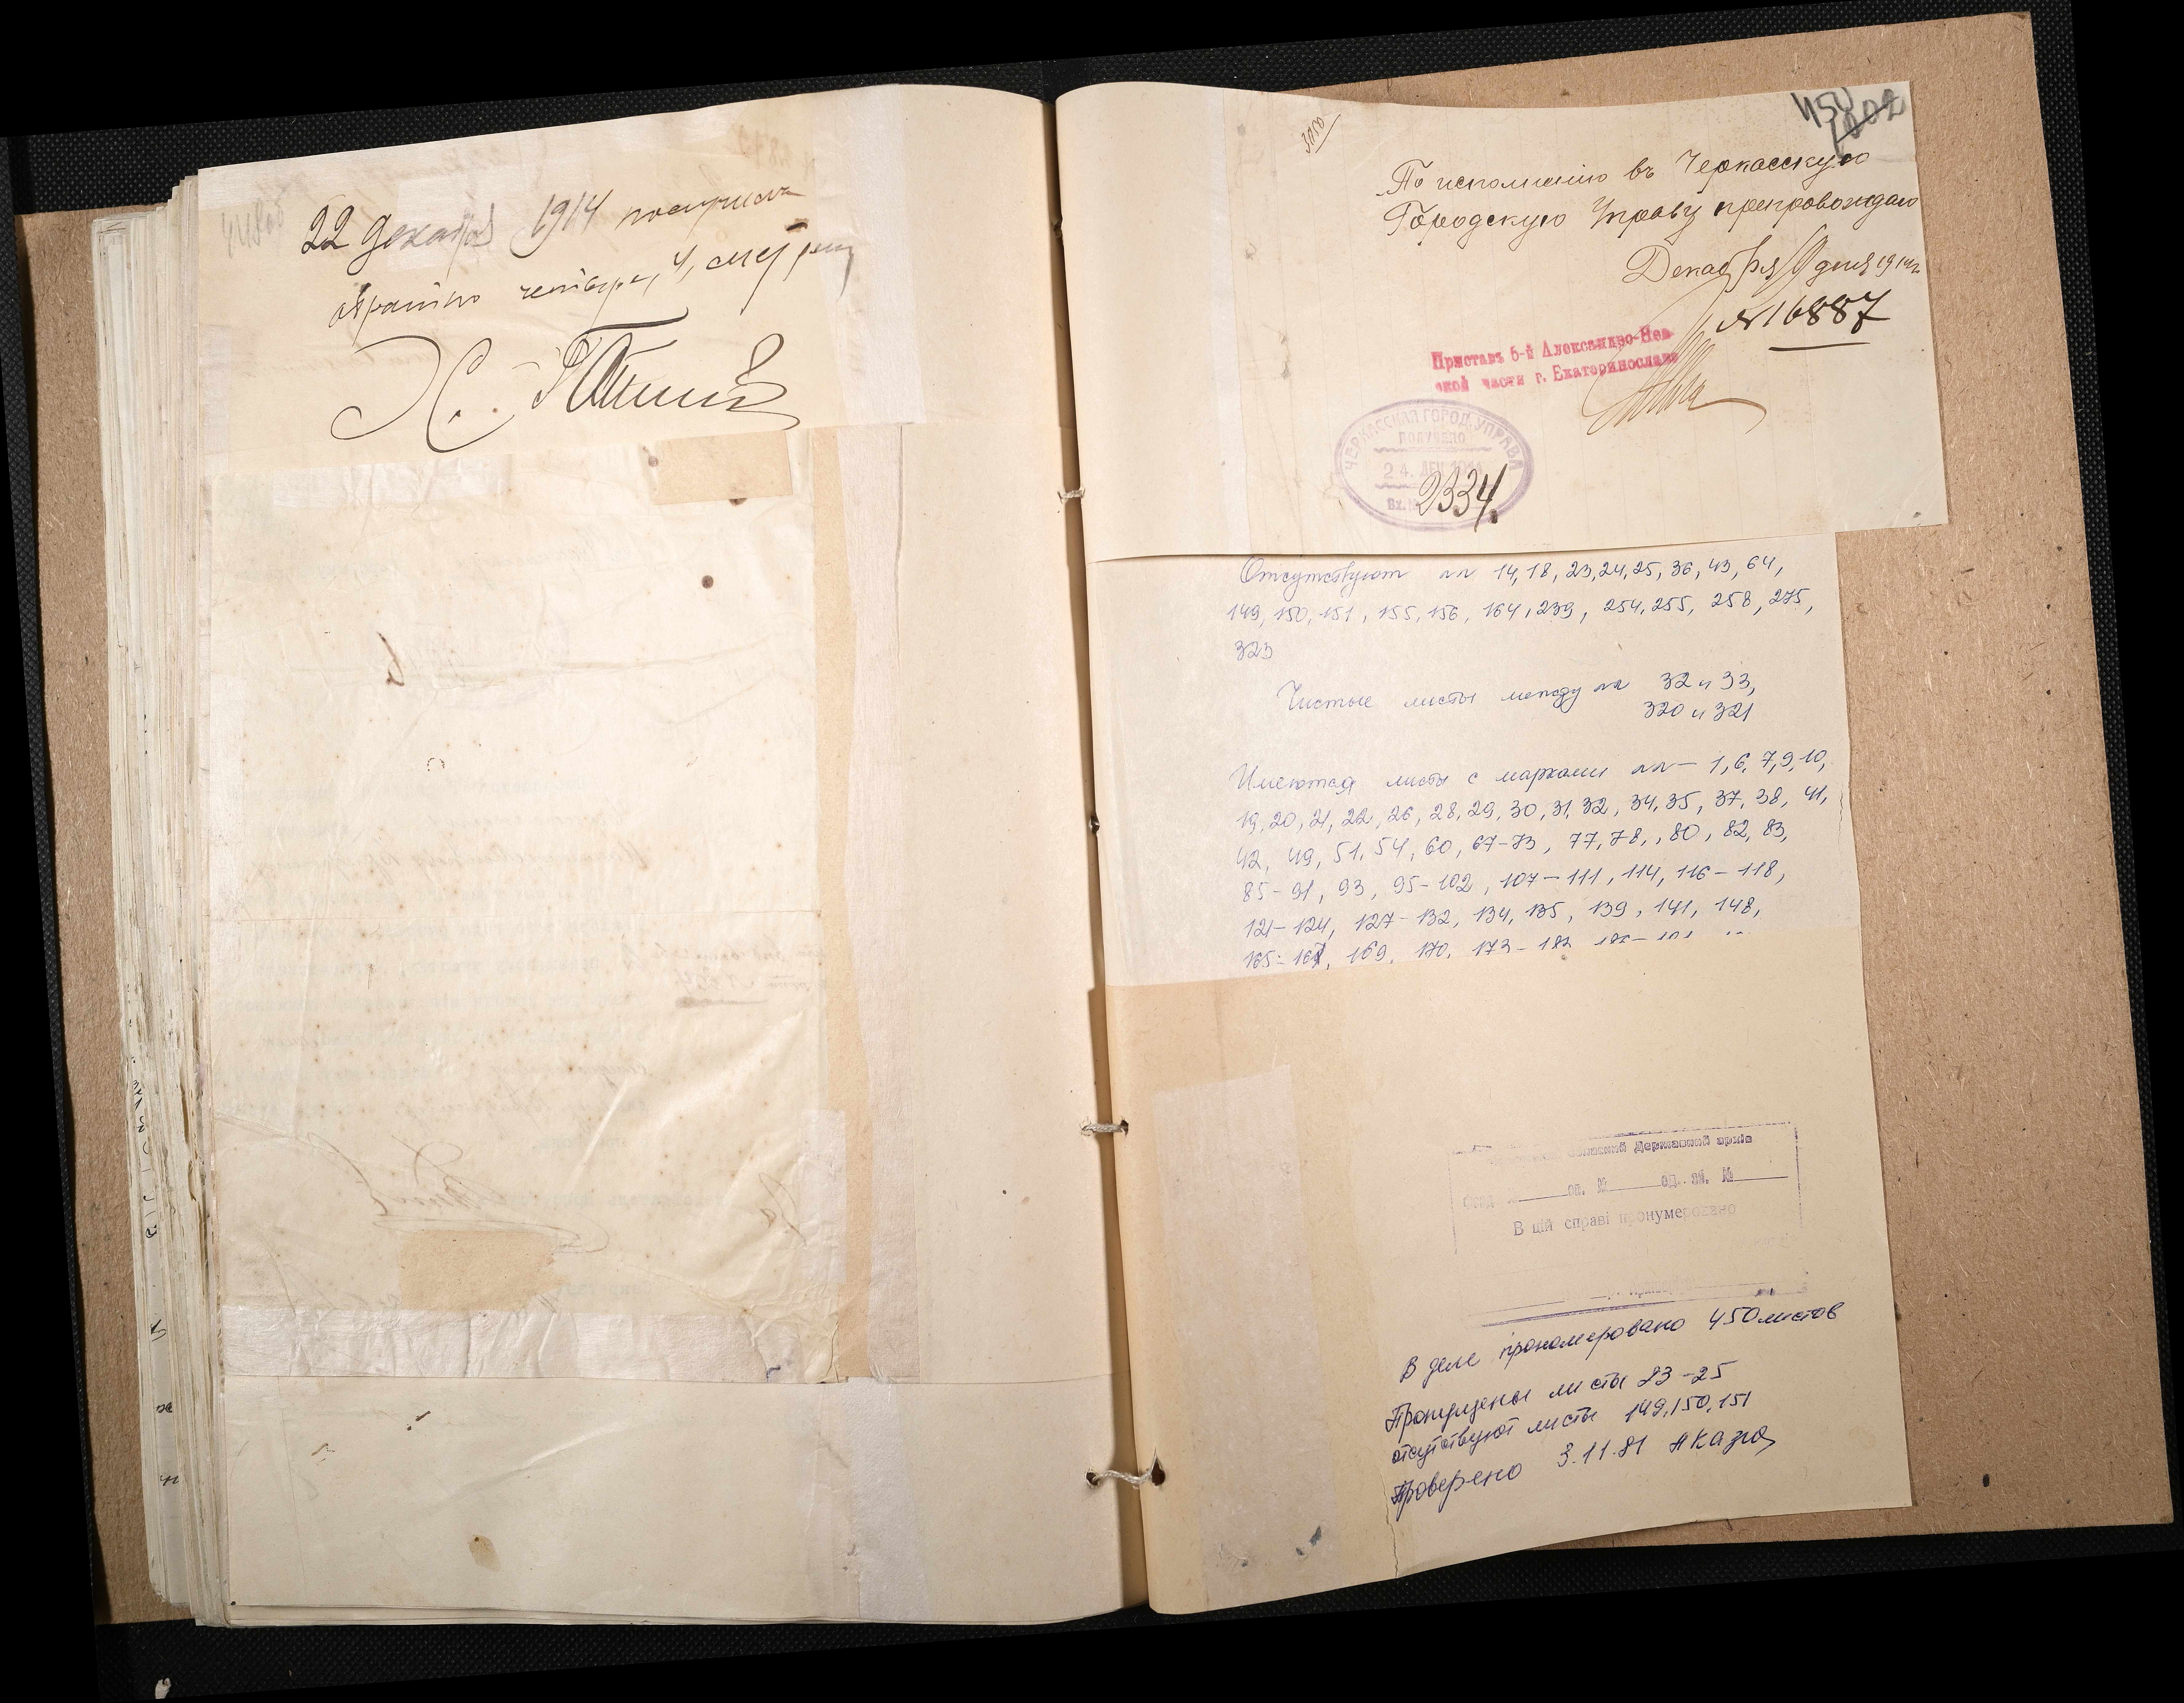 22 Декабря 1914 получилъ
обратно четыре, 4, мет
450
3050
По исполненію въ Черкасскую
Городскую Управу препровождаю
Декабря 19 дня 1914 г.
№ 16887
Приставъ 6-й Александро-Нев-
ской части г. Екатеринослава
ЧЕРКАССКАЯ ГОРОД. УПРАВА
ПОЛУЧЕНО
24. ДЕК 1914
Вх. №
2334.
Отсутствуют лл 14, 18, 23, 24, 25, 36, 43, 64,
149, 150, 151, 155, 156, 164, 239, 254, 255, 258, 275,
323
Чистые листы между лл 32 и 33,
320 и 321
Имеются листы с марками лл – 1, 6, 7, 9, 10,
19, 20, 21, 22, 26, 28, 29, 30, 31, 32, 34, 35, 37, 38, 41,
42, 49, 51, 54, 60, 67-73, 77, 78, 80, 82, 83,
85-91, 93, 95-102, 107-111, 114, 116-118,
121-124, 127-132, 134, 135, 139, 141, 148,
165-167, 169, 170, 173-182
Державний архів
Фонд № оп. № од. зб. №
В цій справі пронумеровано
В деле прономеровано 450 листов
Пропущены листы 23-25
отсутствуют листы 149, 150, 151
Проверено 3.11.81